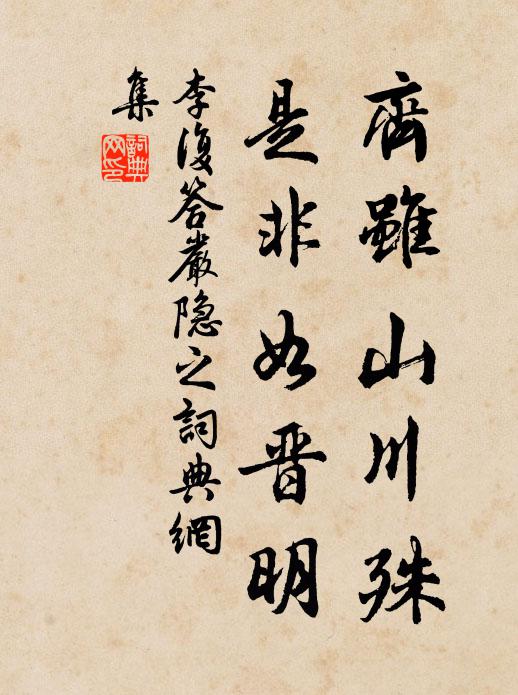 齊雖山川殊
是非如晉明
李復答嚴隐之詞典網
集
詞典
网印